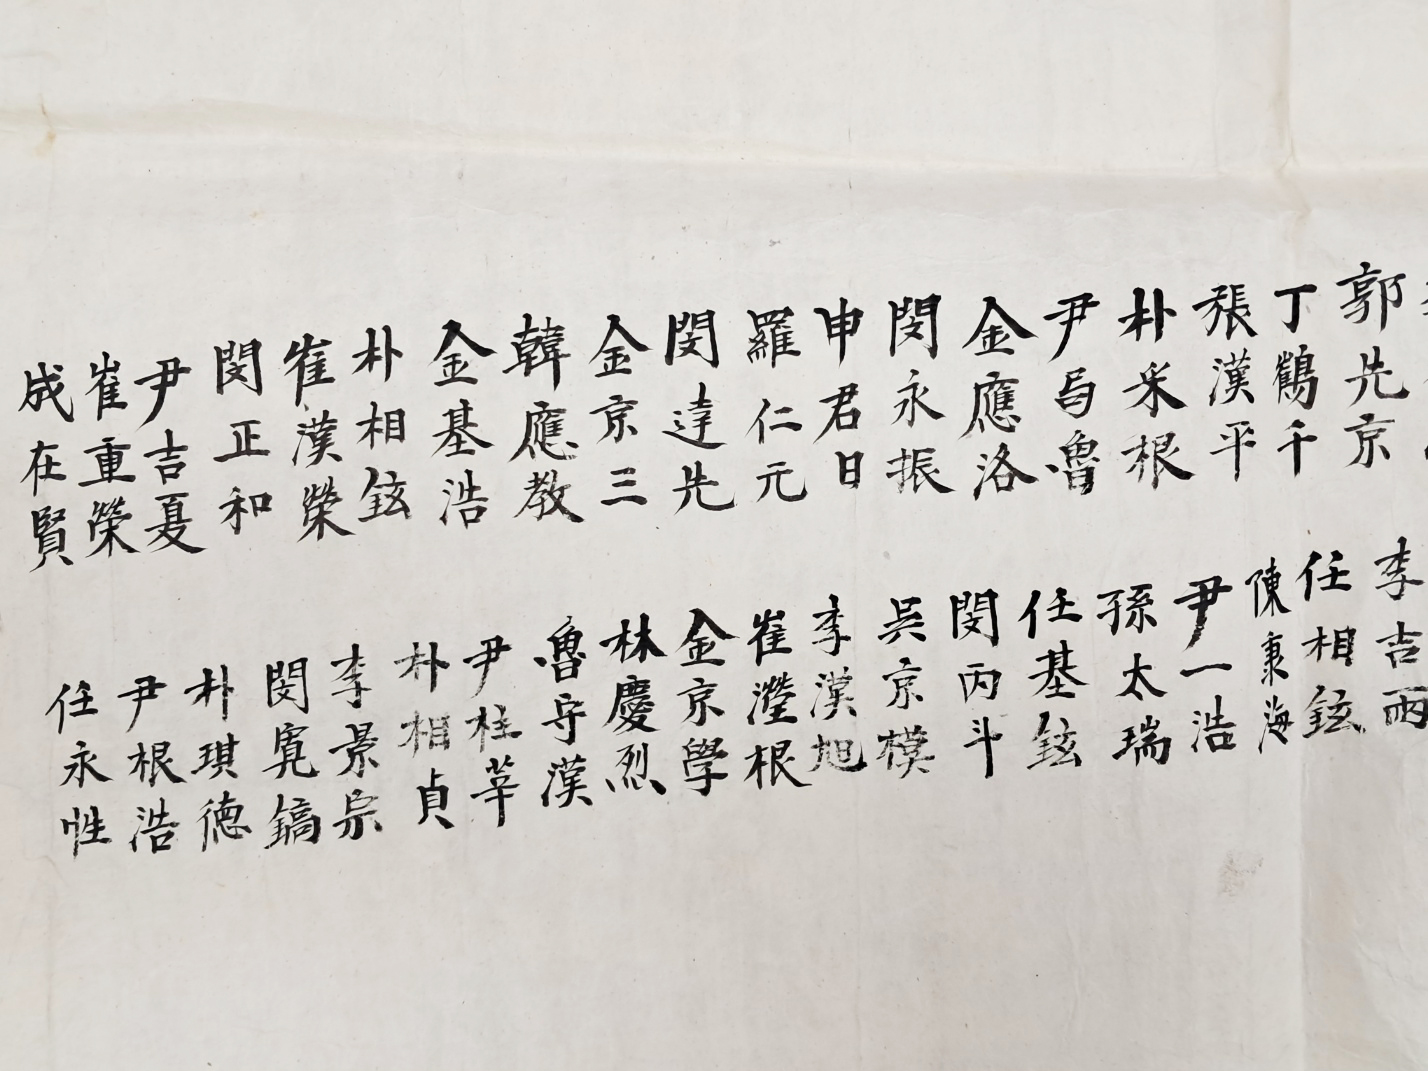 郭先京
丁鶴千
張漢平
朴采根
尹與魯
金應洛
閔永振
申君日
羅仁元
閔達先
金京三
韓應教
金基浩
朴相鉉
崔漢榮
閔正和
尹吉夏
崔重榮
成在賢
李吉雨
任相鉉
陳東海
尹一浩
孫太瑞
任基鉉
閔丙斗
吳京模
李漢旭
崔瀅根
金京學
林慶烈
魯守漢
尹桂莘
朴相貞
李景宗
閔寬鎬
朴琪德
尹根浩
任永性